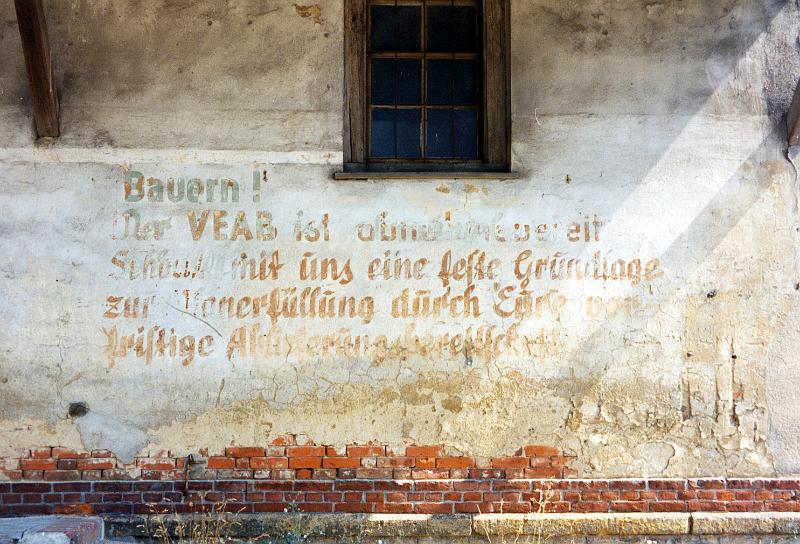 Bauern!
Der VEAB ist abnahmebereit
Schafft mit uns eine feste Grundlage
zur Planerfüllung durch Eure vor-
fristige Ablieferungsbereitschaft